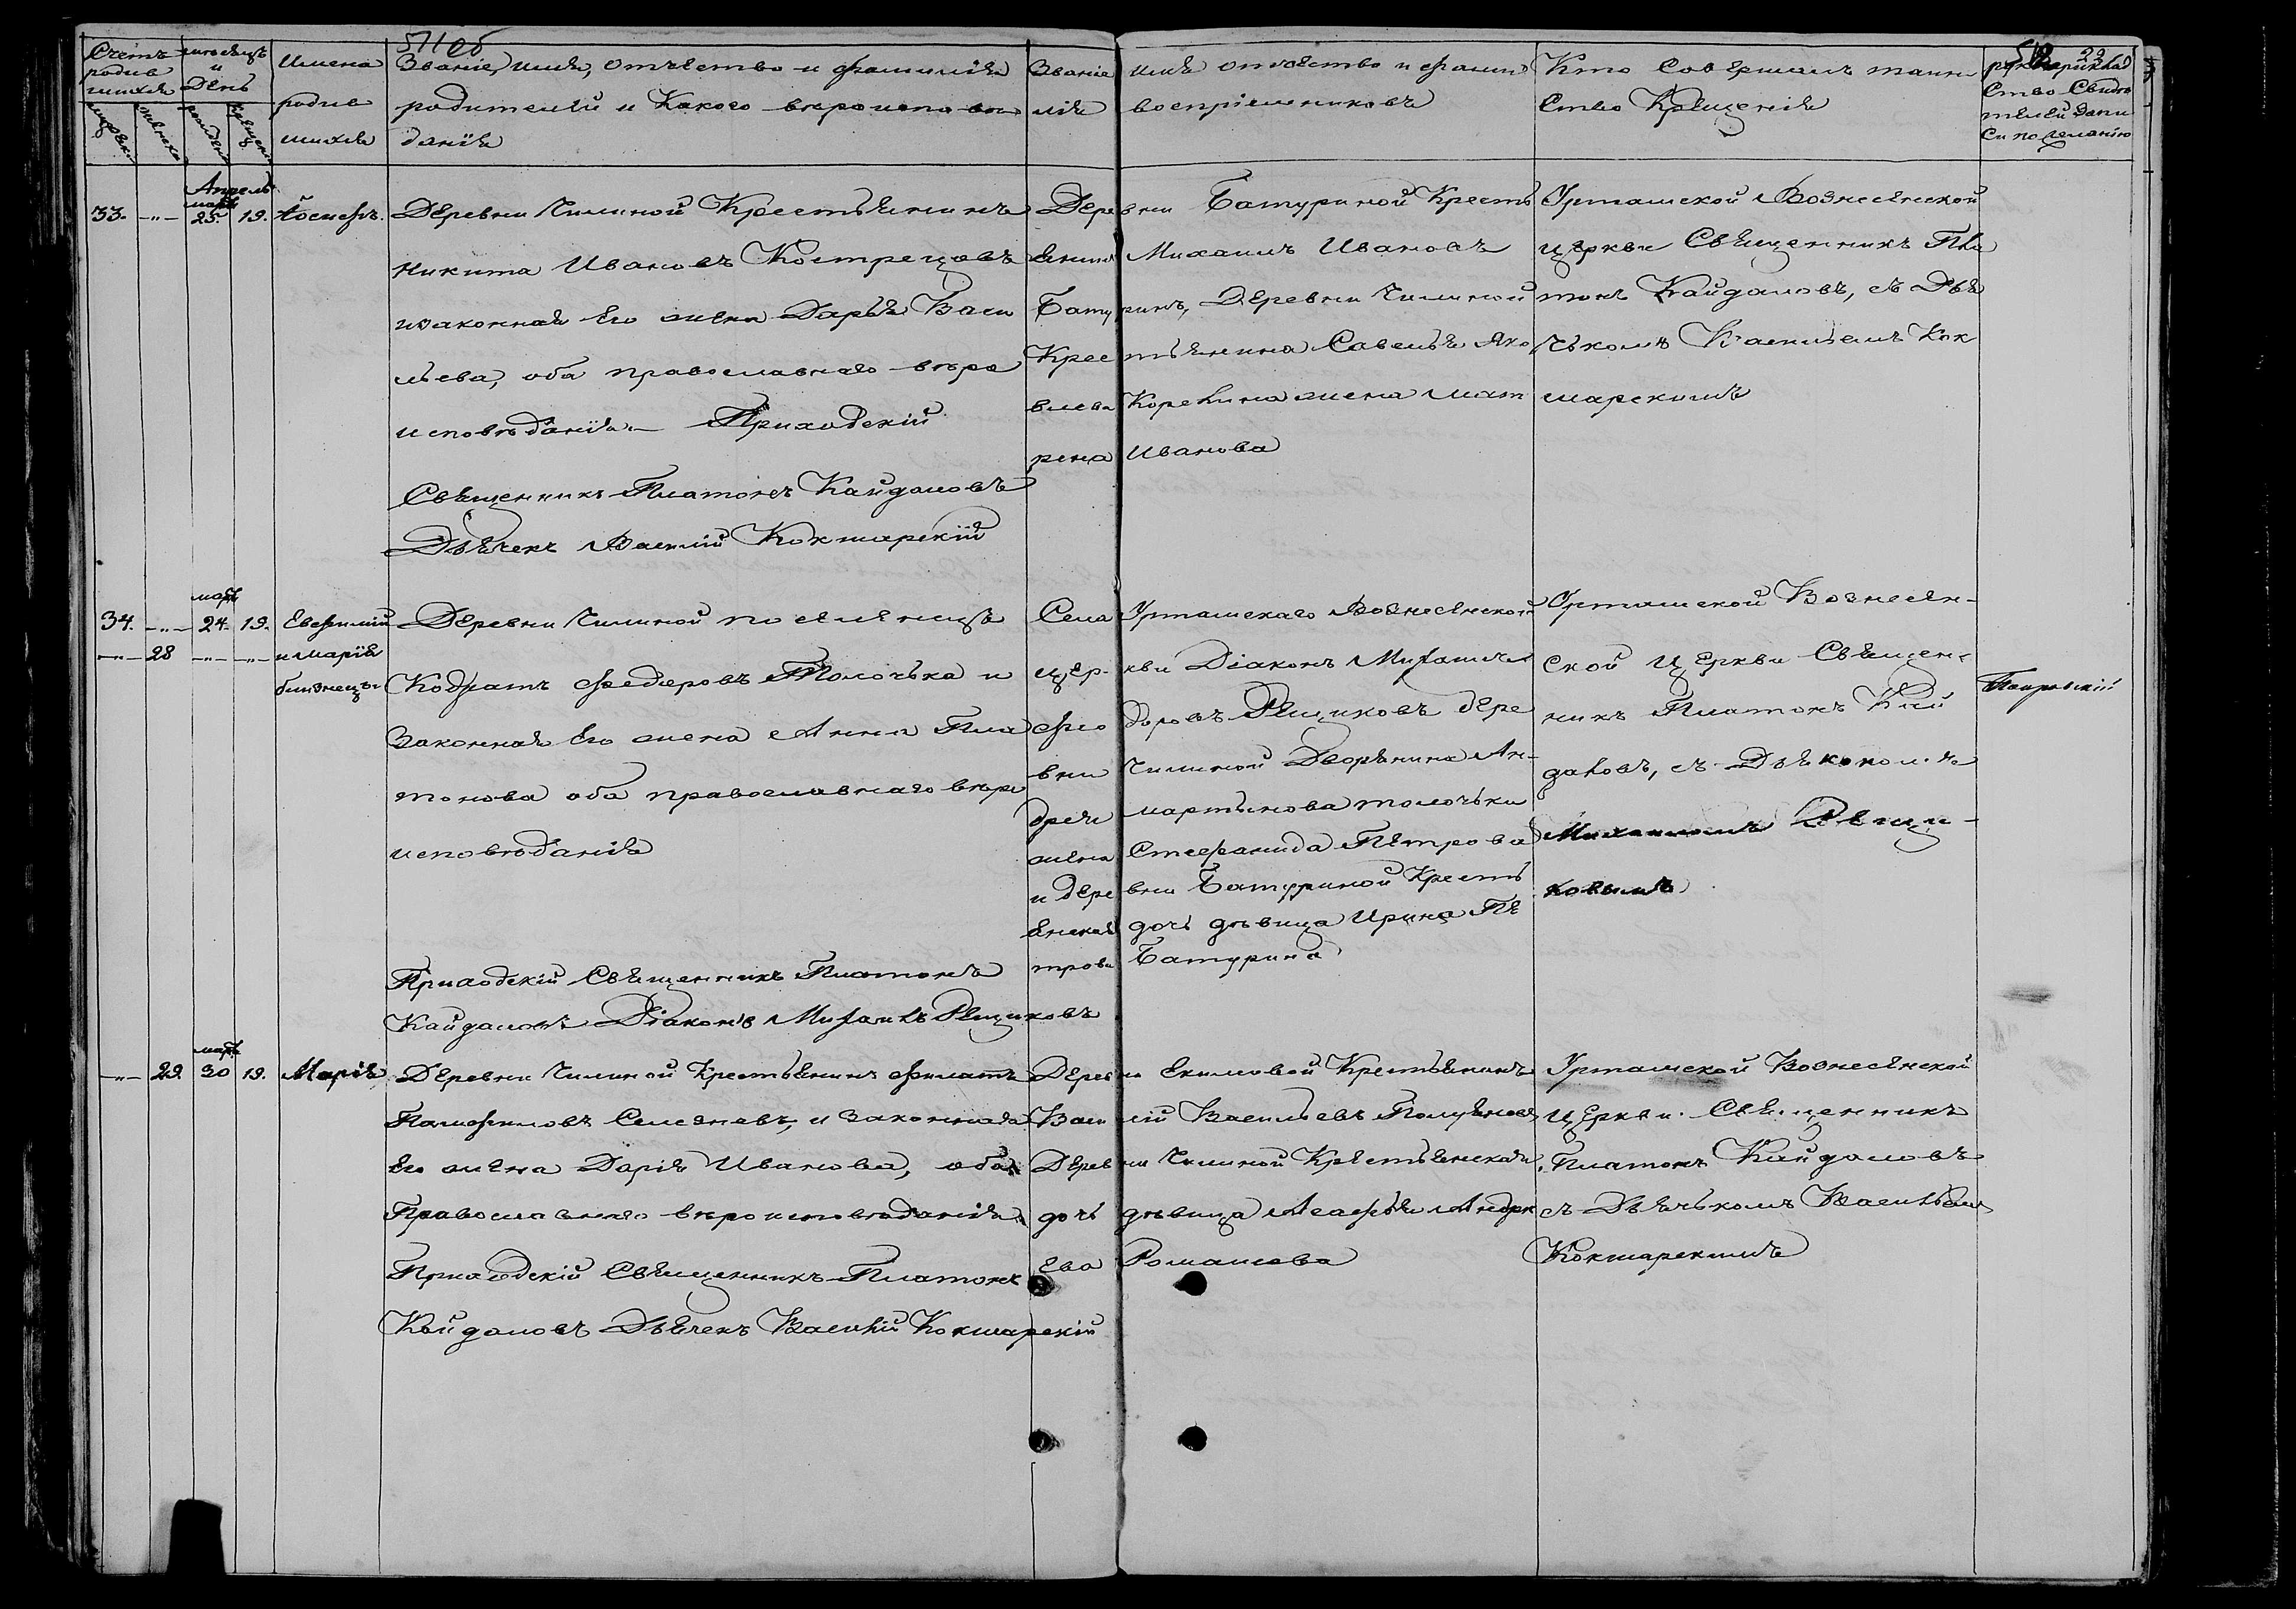 511 об
512 29
Счетъ родив шихся
мѣсяцъ и День
Имена родив шихся
Званіе, имя, отчество и фамилія
родителей и Какого вѣроиспо вѣ
данія
Званіе имя отчество и фами
лія воспріемниковъ
Кто Совершалъ таин
Ство Крещенія
рукоприклад
Ство Свидѣ
телей Запи
Си по желанію
Апрель
мартъ
33. -"- 25. 19. Іосифъ.
Деревни Чилиной Крестьянинъ
Никита Ивановъ Кострецовъ
и законная Его жена Дарья Васи
льева, оба православнаго вѣро
исповѣданія. Приходскій
Священникъ Платонъ Кайдаловъ
Дьячекъ Василій Кокшарскій
Деревни Батуриной Кресть
янинъ Михаилъ Ивановъ
Батуринъ, Деревни Чилиной
Крестьянина Савелья Яко
влева Корекина жена Мат
рена Иванова
Урташской Вознесенской
церкви Священникъ Пла
тонъ Кайдаловъ, съ Дья
чькомъ Васильемъ Кок
шарскимъ
мартъ
34. -"- 24. 19. Евфимій
-"- 28 -"- -"- и Марія
близнецы
Деревни Чилиной поселенецъ
Кодратъ Федоровъ Толочька и
Законная Его жена Анна Пла
тонова оба православнаго вѣро
исповѣданія
Приходскій Священникъ Платонъ
Кайдаловъ Діаконъ Михаилъ Рещиковъ
Села Урташскаго Вознесенской
цер- кви Діаконъ Михаилъ
Фео доровъ Рещиковъ дере
вни Чилиной Дворянина Ан-
дрея Мартынова толочьки
жена Стефанида Петрова
и дере вни Батуриной Кресть
янская дочь дѣвица Ирина Пе
трова Батурина
Урташской Вознесен-
ской Церкви Священ-
никъ Платонъ Кай
даловъ, съ Дьякономъ
Михаиломъ Рещи-
ковымъ
мартъ
-"- 29. 30 19. Марія
Деревни Чилиной Крестьянинъ Филатъ
Памфиловъ Селезневъ, и законная
Его жена Дарія Иванова, оба
Православнаго вѣроисповѣданія
Приходскій Священникъ Платонъ
Кайдаловъ Дьячекъ Василій Кокшарскій
Деревни Екимовой Крестьянинъ
Василій Васильевъ Полуяновъ
Деревни Чилиной Крестьянская
дочь дѣвица Агафья Андре
ева Романова
Урташской Вознесенской
Церкви Священникъ
Платонъ Кайдаловъ
съ Дьячькомъ Васильемъ
Кокшарскимъ